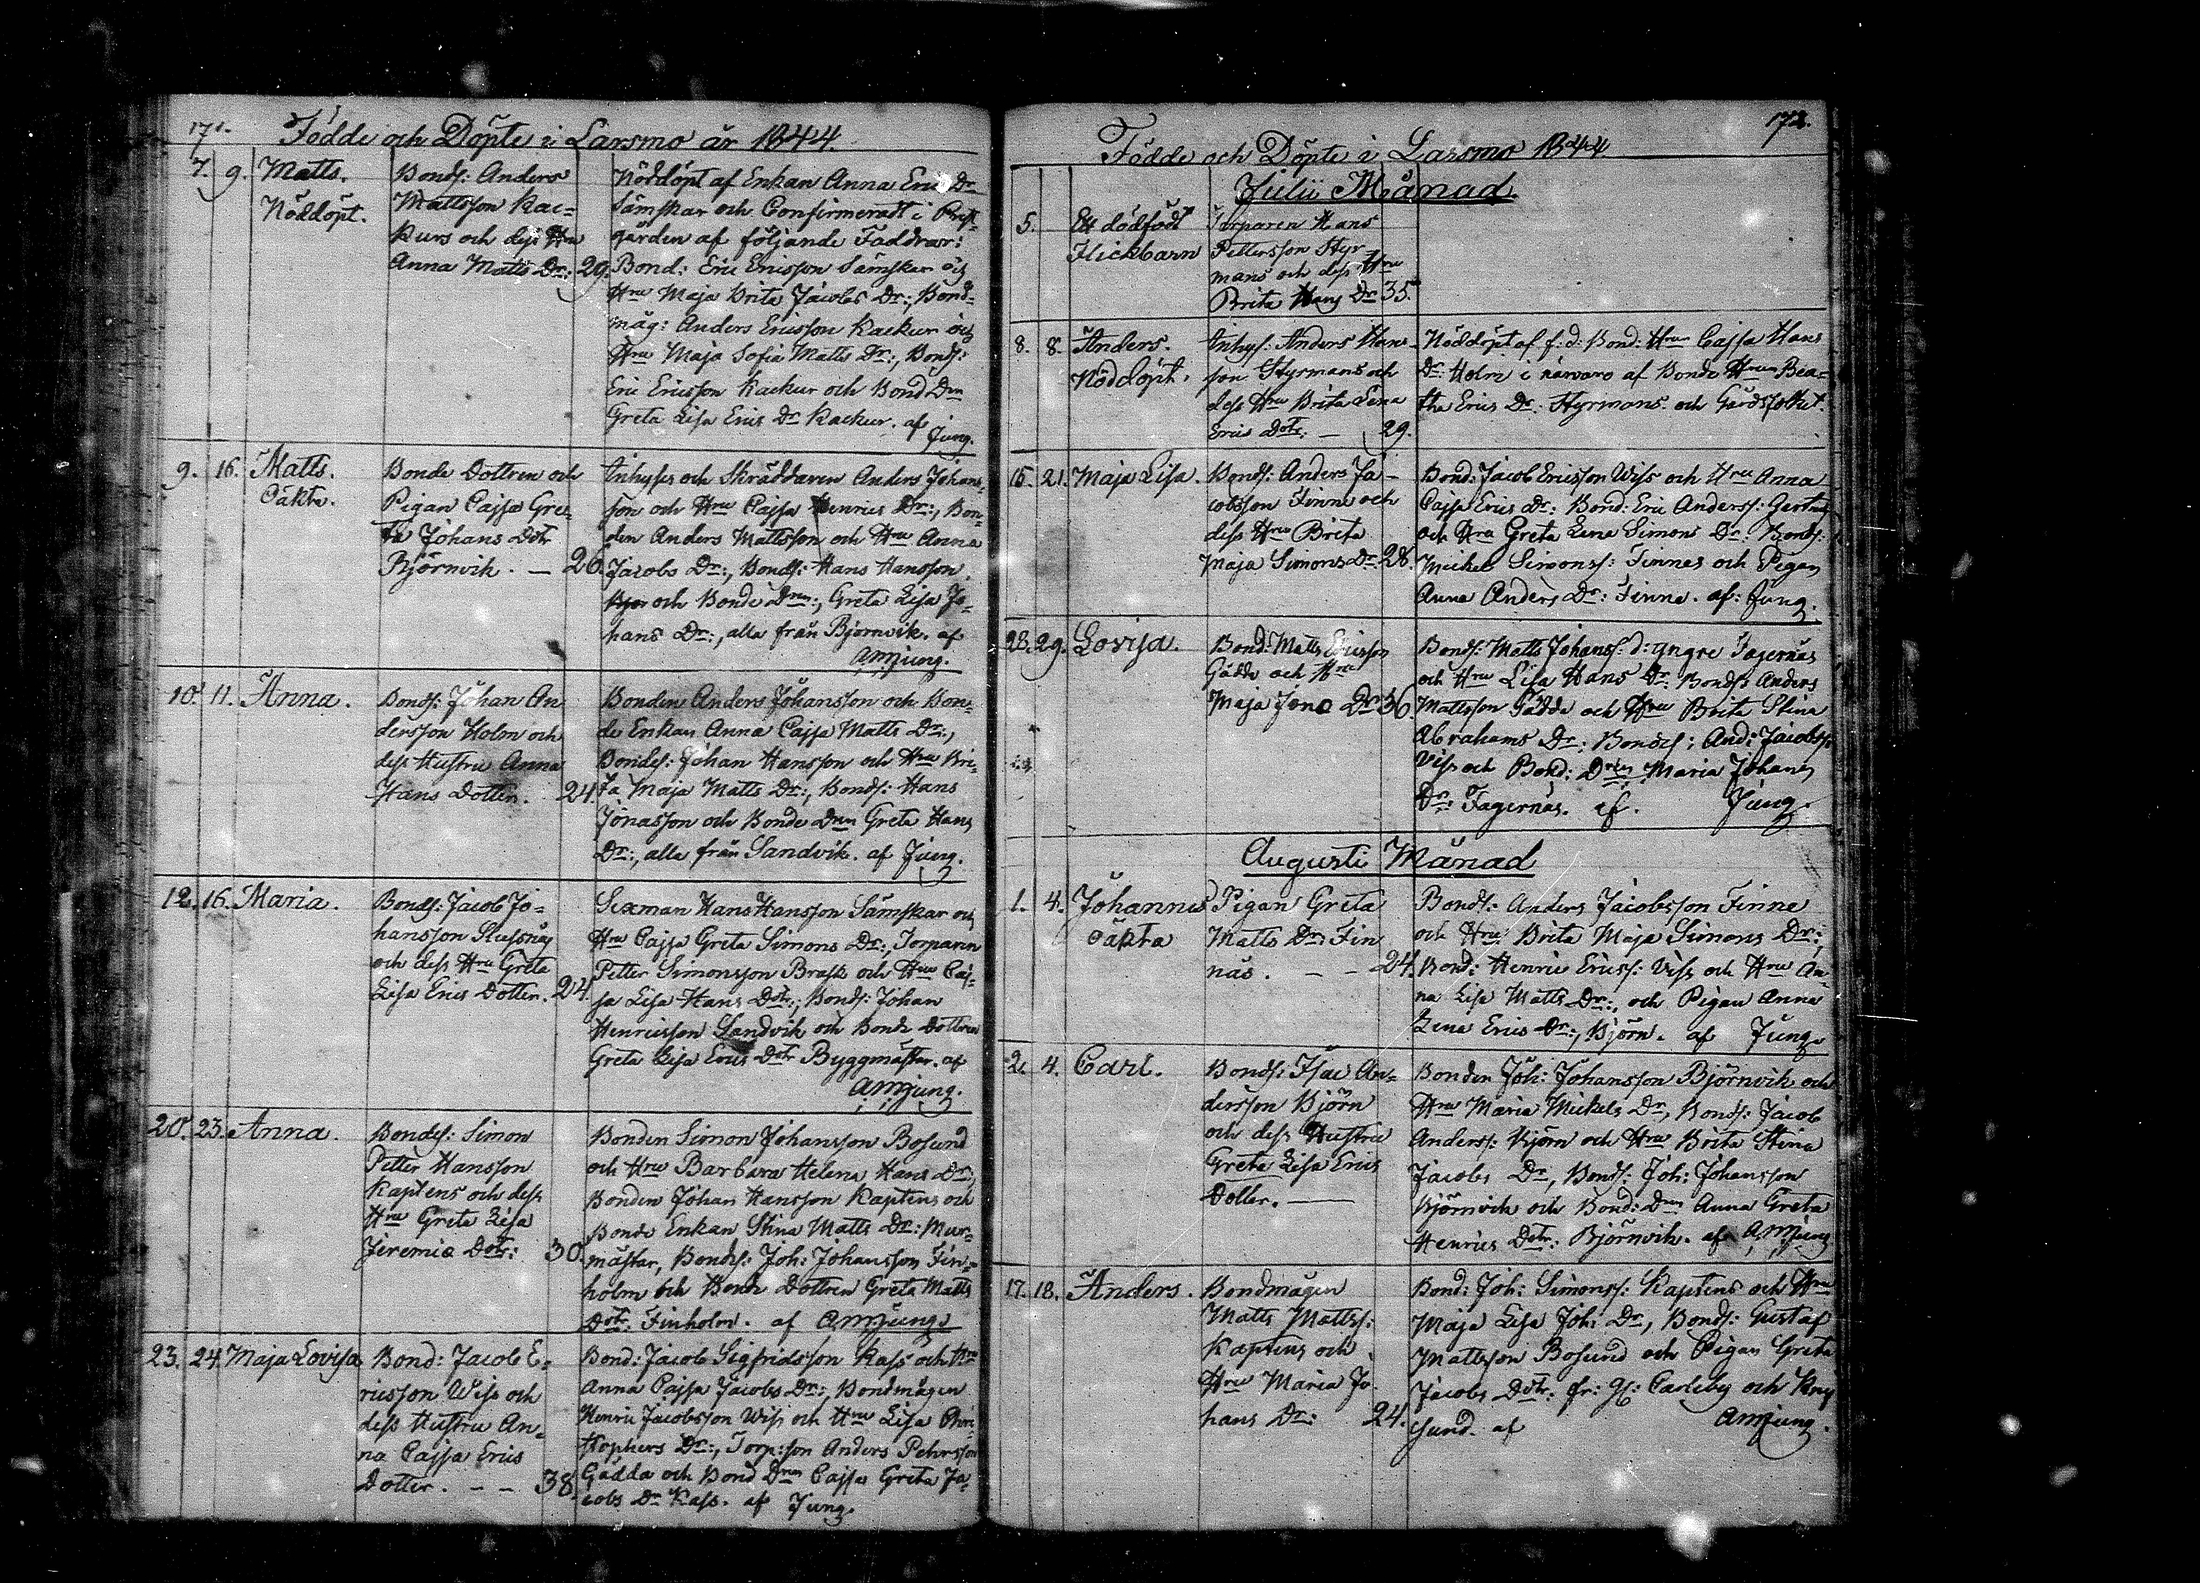 171.
Födde och Döpte i Larsmo år 1844.
7. 9. Matts.
Nöddöpt.
Bonds: Anders
Mattsson Kac=
kurs och dess Hru
Anna Matts Dr: 29.
Nöddöpt af Enkan Anna Erics Dr
Sämskar och Confirmeradt i Prest-
gården af följande Faddrar:
Bond: Eric Ericsson Sämskar och
Hru Maja Brita Jacobs Dr:, Bond=
måg: Anders Ericsson Kackur och
Hru Maja Sofia Matts Dr:, Bonds:
Eric Ericsson Kackur och Bond Drn
Greta Lisa Erics Dr Kackur. af
Jung.
9. 16. Matts.
Oäkta.
Bonde Dottren och
Pigan Cajsa Gre-
ta Johans Dotr
Björnvik. — 26.
Inhyses och Skräddaren Anders Johans-
son och Hru Cajsa Henrics Dr:, Bon-
den Anders Mattsson och Hru Anna
Jacobs Dr:, Bonds: Hans Hansson
och Bonde Drn:, Greta Lisa Jo-
hans Dr:, alla från Björnvik. af
AMJung.
10. 11. Anna.
Bonds: Johan An
dersson Holm och
dess Hustru Anna
Hans Dotter. 24.
Bonden Anders Johansson och Bon-
de Enkan Anna Cajsa Matts Dr:,
Bondes: Johan Hansson och Hru Bri-
ta Maja Matts Dr:, Bonds: Hans
Jonasson och Bonde Drn Greta Hans
Dr:, alla från Sandvik. af Jung.
12. 16. Maria.
Bonds: Jacob Jo=
hansson
och dess Hru Greta
Lisa Erics Dotter. 24.
Sexman Hans Hansson Sämskar och
Hru Cajsa Greta Simons Dr:, Torparen
Petter Simonsson Brask och Hru Caj-
sa Lisa Hans Dotr:, Bonds: Johan
Henricsson Sandvik och Bonde Dottren
Greta Lisa Erics Dotr Byggmästar. af
AMJung.
20. 23. Anna.
Bondes: Simon
Petter Hansson
Kaptens och dess
Hru Greta Lisa
Jeremia Dotr: 30.
Bonden Simon Johansson Bosund
och Hru Barbara Helena Hans Dr,
Bonden Johan Hansson Kaptens och
Bonde Enkan Stina Matts Dr: Mur-
mästar, Bonds: Joh: Johansson Fin-
holm och Bonde Dottren Greta Matts
Dotr: Finholm. af AMJung.
23. 24. Maja Lovisa
Bond: Jacob E-
ricsson Wiss och
dess Hustru An-
na Cajsa Erics
Dotter. — — 38.
Bond: Jacob Sigfridsson Kass och Hru
Anna Cajsa Jacobs Dr:, Bondmågen
Henric Jacobsson Wiss och Hru Lisa Chri-
stophers Dr:, Torp:son Anders Pehrsson
Gädda och Bond Drn Cajsa Greta Ja-
cobs Dr Kass. af Jung.
172.
Födde och Döpte i Larsmo 1844.
Julii Månad.
5. Ett dödfödt
Flickbarn
Torparen Hans
Pettersson Styr
mans och dess Hru
Brita Hans Dr 35.
8. 8. Anders.
Nöddöpt.
Inhys: Anders Hans-
son Styrmans och
dess Hru Brita Lena
Erics Dotr: — 29.
Nöddöpt af f:d: Bond: Hrun Cajsa Hans
Dr: Holm i närvaro af Bonde Hrun Bea-
tha Erics Dr: Styrmans och Gårdsfolket.
15. 21. Maja Lisa.
Bonds: Anders Ja-
cobsson Finne och
dess Hru Brita
Maja Simons Dr: 28.
Bond: Jacob Ericsson Wiss och Hru Anna
Cajsa Erics Dr: Bond: Eric Anderss:
och Hru Greta Lena Simons Dr: Bonds:
Mickel Simonss: Finnes och Pigan
Anna Anders Dr: Finne. af: Jung.
28. 29. Lovisa.
Bond: Matts Ericsson
Gädda och Hru
Maja Jona Dr 36.
Bonds: Matts Johans: d: yngre Fagernäs
och Hru Lisa Hans Dr: Bonds: Anders
Mattsson Gädda och Hru Brita Stina
Abrahams Dr: Bonds: And: Jacobss:
Viss och Bond: Drn Maria Johans
Dr: Fagernäs. af. Jung.
Augusti Månad
1. 4. Johannes
oäkta
Pigan Greta
Matts Dr: Fin
näs. — — 24.
Bonds: Anders Jacobsson Finne
och Hru Brita Maja Simons Dr:,
Bond: Henric Ericss: Viss och Hru An-
na Lisa Matts Dr:, och Pigan Anna
Lena Erics Dr:, Björn. af Jung.
2. 4. Carl.
Bonds: Isac An-
dersson Björn
och dess Hustru
Greta Lisa Erics
Dotter. —
Bonden Joh: Johansson Björnvik och
Hru Maria Mickels Dr, Bonds: Jacob
Anderss: Björn och Hru Brita Stina
Jacobs Dr, Bonds: Joh: Johansson
Björnvik och Bond: Drn Anna Greta
Henrics Dotr: Björnvik. af AMJung
17. 18. Anders.
Bondmågen
Matts Mattss:
Kaptens och
Hru Maria Jo
hans Dr: 24.
Bond: Joh: Simonss: Kaptens och Hru
Maja Lisa Joh: Dr, Bonds: Gustaf
Mattsson Bosund och Pigan Greta
Jacobs Dotr: fr: Gl: Carleby och
sund. af AMJung.